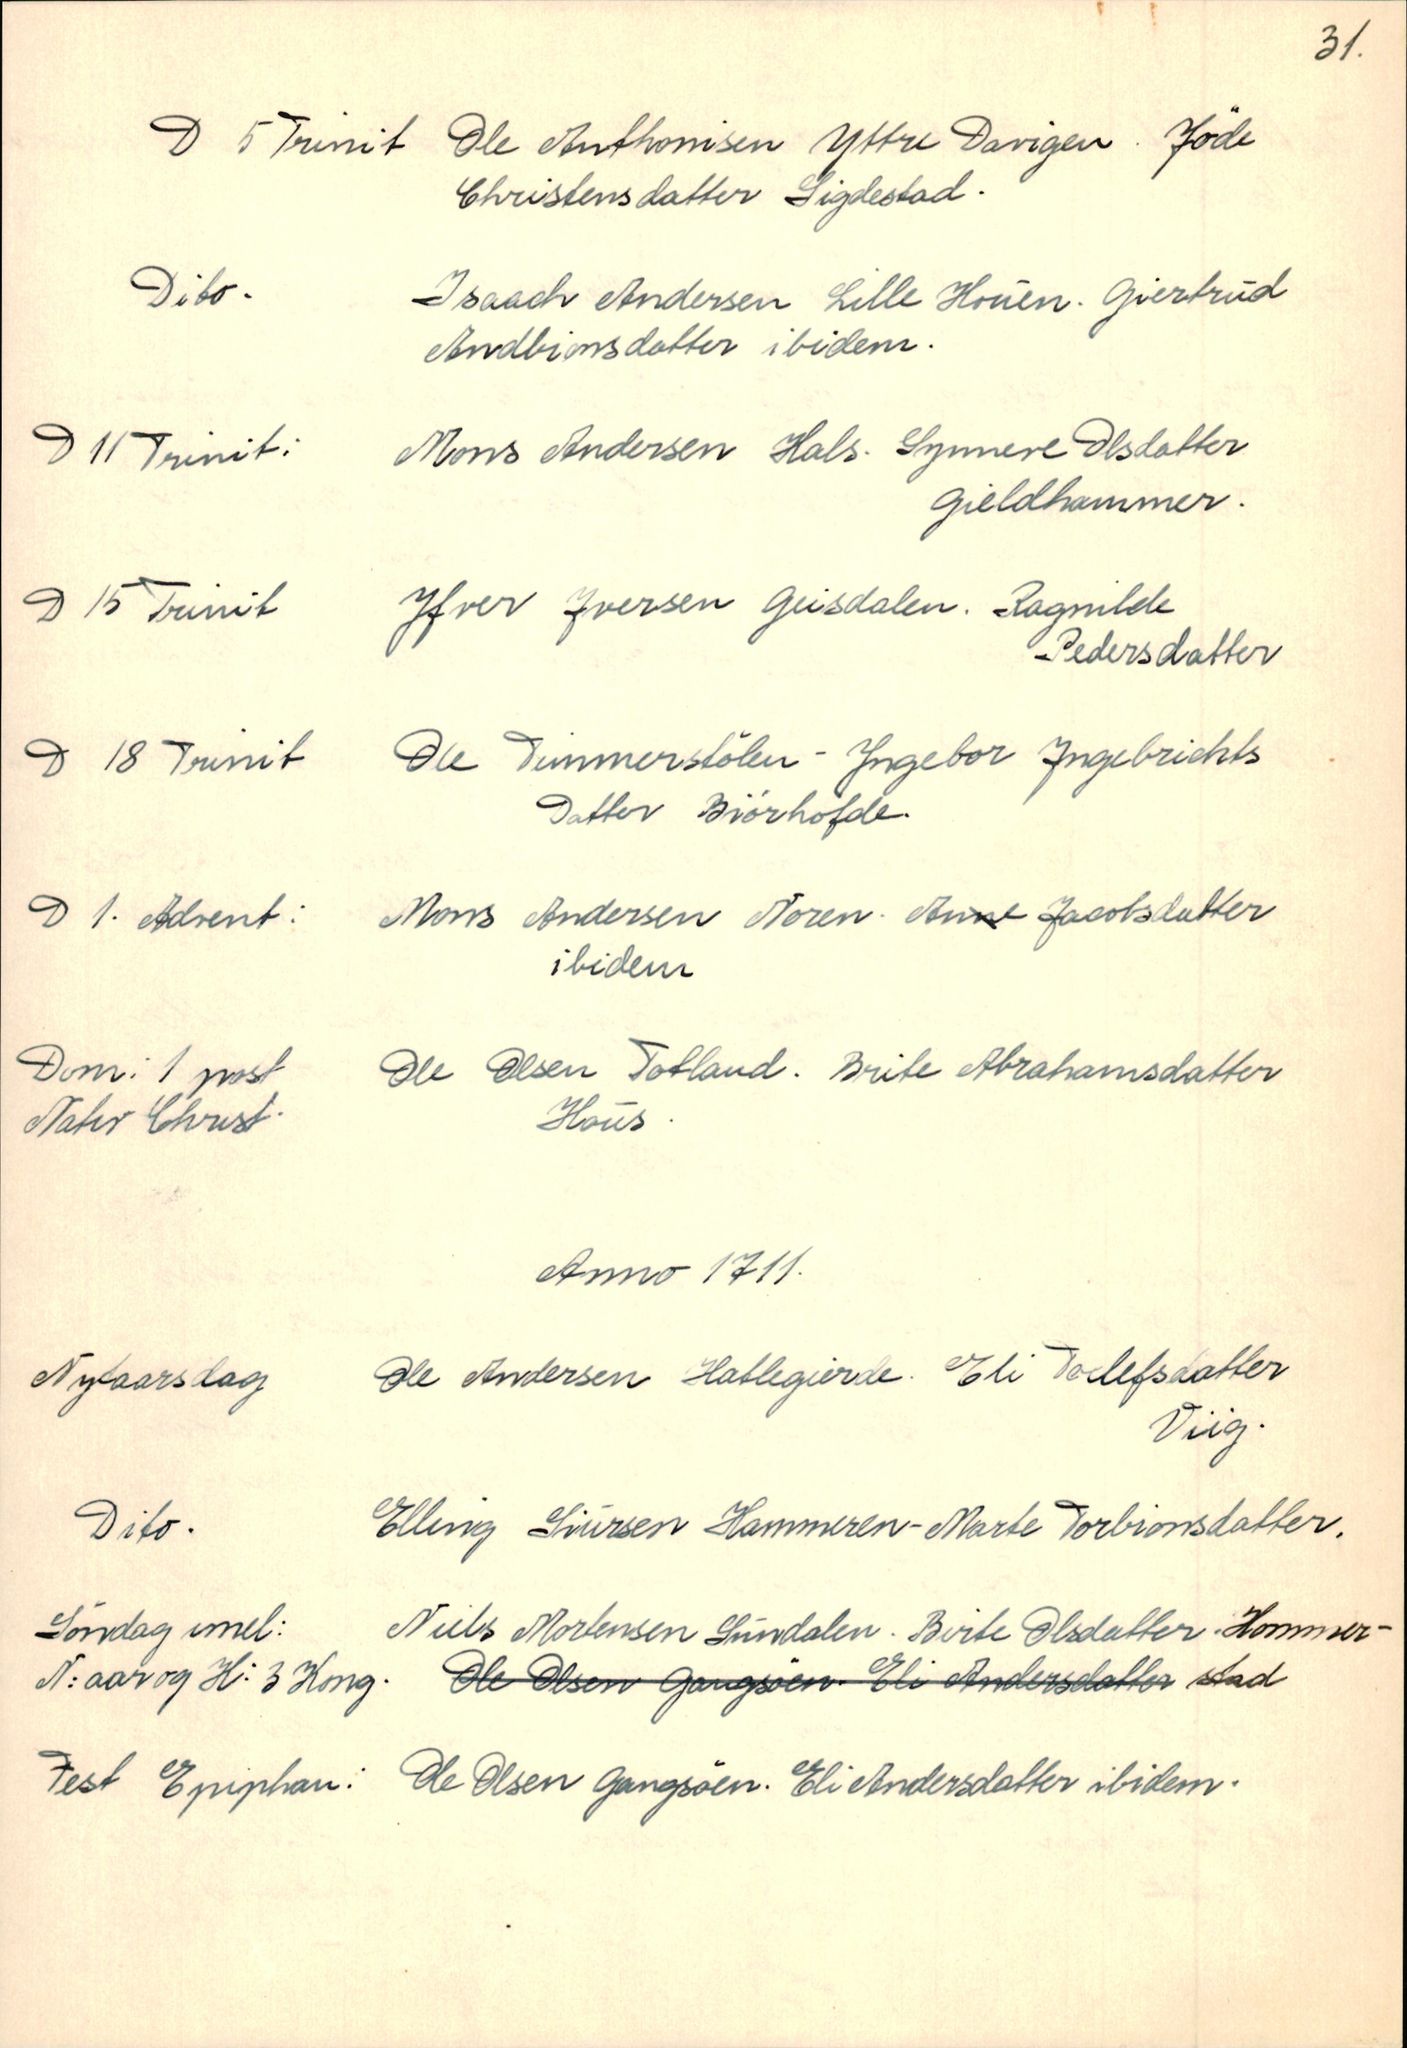 31.
D 5 Trinit Ole Anthonisen Yttre Davigen. Jöde
Christensdatter Sigdestad.
Dito. Isaach Andersen Lille Houen. Giertrud
Andbionsdatter ibidem.
D 11 Trinit: Mons Andersen Hals. Synneve Olsdatter
Gieldhammer.
D 15 Trinit Yfver Iversen Geisdalen. Ragnilde
Pedersdatter
D 18 Trinit Ole Timmerstölen - Ingebor Ingebrichts
Datter Biörhofde.
D 1. Advent: Mons Andersen Noren. Anne Jacobsdatter
ibidem
Dom: 1 post Ole Olsen Totland. Brite Abrahamsdatter
Nativ Christ. Hoüs.
Anno 1711.
Nytaarsdag Ole Andersen Hatlegierde. Eli Tollefsdatter
Viig.
Dito. Elling Siürsen Hammeren - Marte Torbionsdatter.
Söndag imel: Niels Mortensen Sündalen. Birte Olsdatter Hommer-
N: aar og H: 3 Kong. Ole Olsen Gangsöen. Eli Andersdatter stad
Fest Epiphan: Ole Olsen Gangsöen. Eli Andersdatter ibidem.